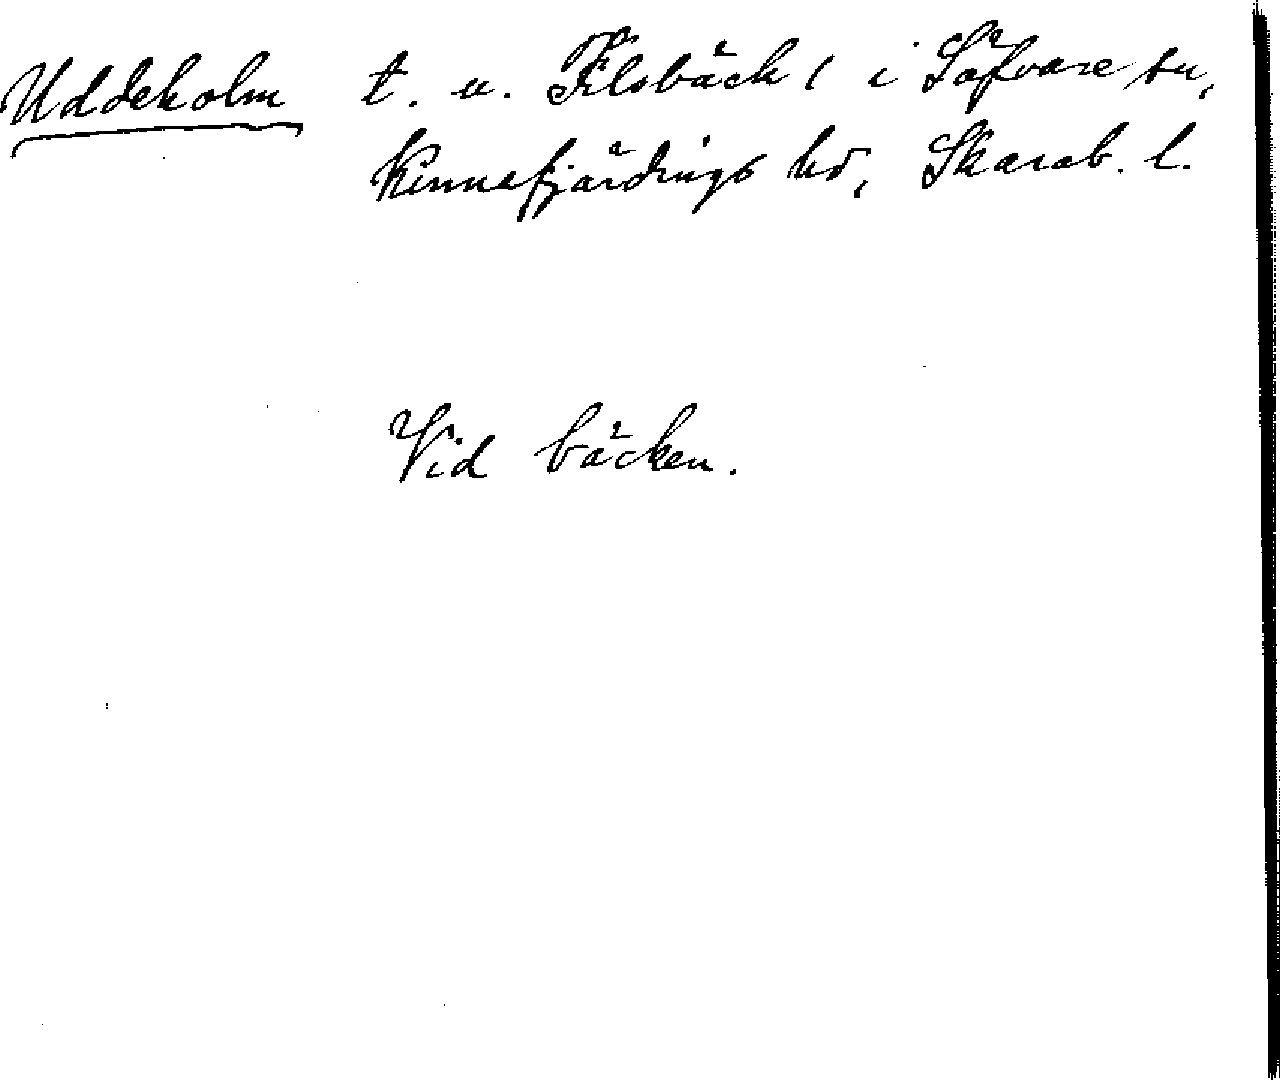 Uddeholm t. u. Filsbäck 1 i Säfvare sn,
Kinnefjärdings hd, Skarab. l.
Vid bäcken.